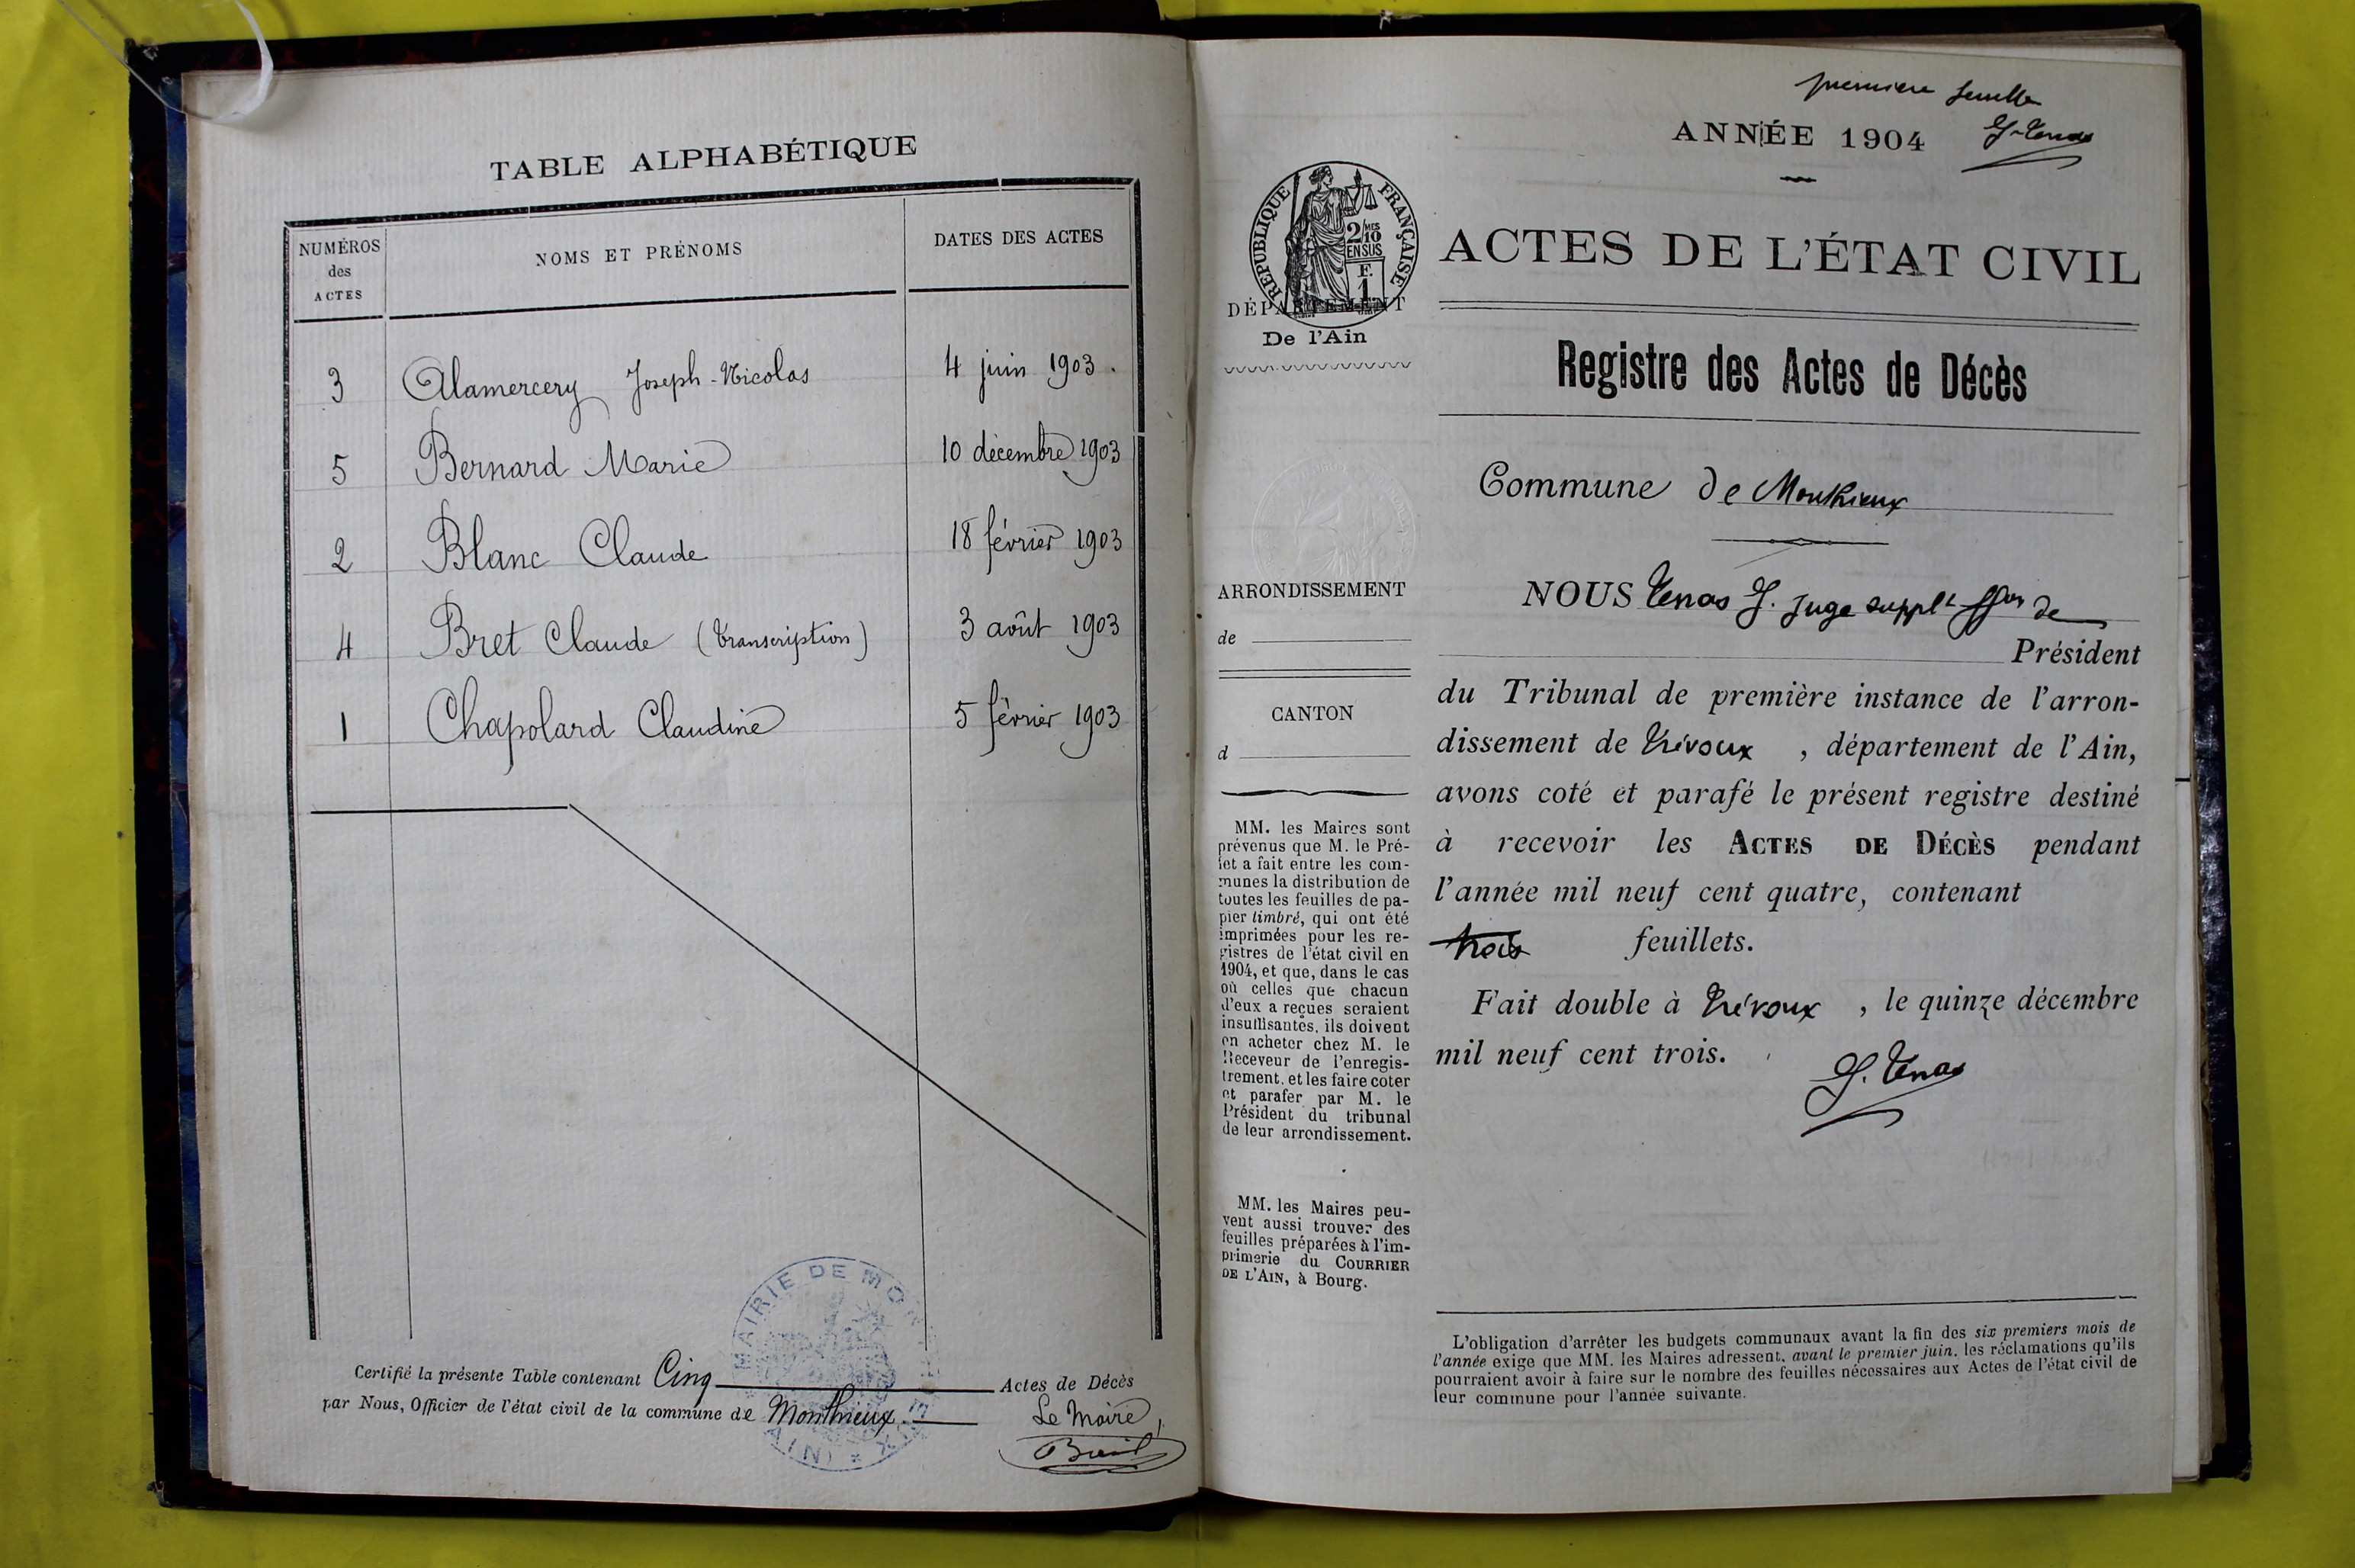 TABLE ALPHABÉTIQUE
NUMÉROS des ACTES
NOMS ET PRÉNOMS
DATES DES ACTES
3 Alamercery Joseph-Nicolas 4 juin 1903.
5 Bernard Marie 10 décembre 1903
2 Blanc Claude 18 février 1903
4 Bret Claude (transcription) 3 août 1903
1 Chapolard Claudine 5 février 1903
Certifié la présente Table contenant Cinq Actes de Décès
par Nous, Officier de l'état civil de la commune de Monthieux.
Le Maire,
MAIRIE DE MONTHIEUX * (AIN) *
première feuille
G. Tenas
ANNÉE 1904
RÉPUBLIQUE FRANÇAISE
2/10 MES
EN SUS
F.
1
DÉPARTEMENT
De l'Ain
ACTES DE L'ÉTAT CIVIL
Registre des Actes de Décès
Commune de Monthieux
ARRONDISSEMENT
de
CANTON
d
MM. les Maires sont
prévenus que M. le Pré-
fet a fait entre les com-
munes la distribution de
toutes les feuilles de pa-
pier timbré, qui ont été
imprimées pour les re-
gistres de l'état civil en
1904, et que, dans le cas
où celles que chacun
d'eux a reçues seraient
insuffisantes, ils doivent
en acheter chez M. le
Receveur de l'enregis-
trement, et les faire coter
et parafer par M. le
Président du tribunal
de leur arrondissement.
MM. les Maires peu-
vent aussi trouver des
feuilles préparées à l'im-
primerie du COURRIER
DE L'AIN, à Bourg.
NOUS Tenas G. Juge supplt de
Président
du Tribunal de première instance de l'arron-
dissement de Trévoux , département de l'Ain,
avons coté et parafé le présent registre destiné
à recevoir les ACTES DE DÉCÈS pendant
l'année mil neuf cent quatre, contenant
trois feuillets.
Fait double à Trévoux , le quinze décembre
mil neuf cent trois.
G. Tenas
L'obligation d'arrêter les budgets communaux avant la fin des six premiers mois de
l'année exige que MM. les Maires adressent, avant le premier juin, les réclamations qu'ils
pourraient avoir à faire sur le nombre des feuilles nécessaires aux Actes de l'état civil de
leur commune pour l'année suivante.